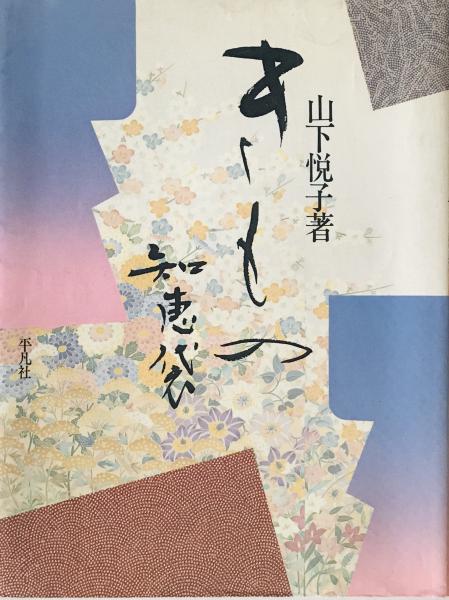 山下悦子著
きもの
知恵袋
平凡社